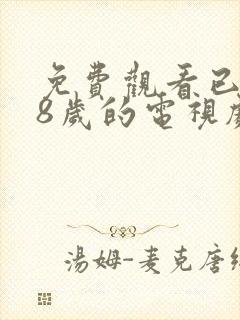 免費觀看已
8歲的電視劇
湯姆-麦克唐纳